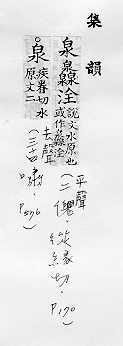 集韻
泉 洤 說文水原也
或作 洤
平聲
(二僊.從緣切.P170)
泉 疾眷切水
原文二
去聲
P576)